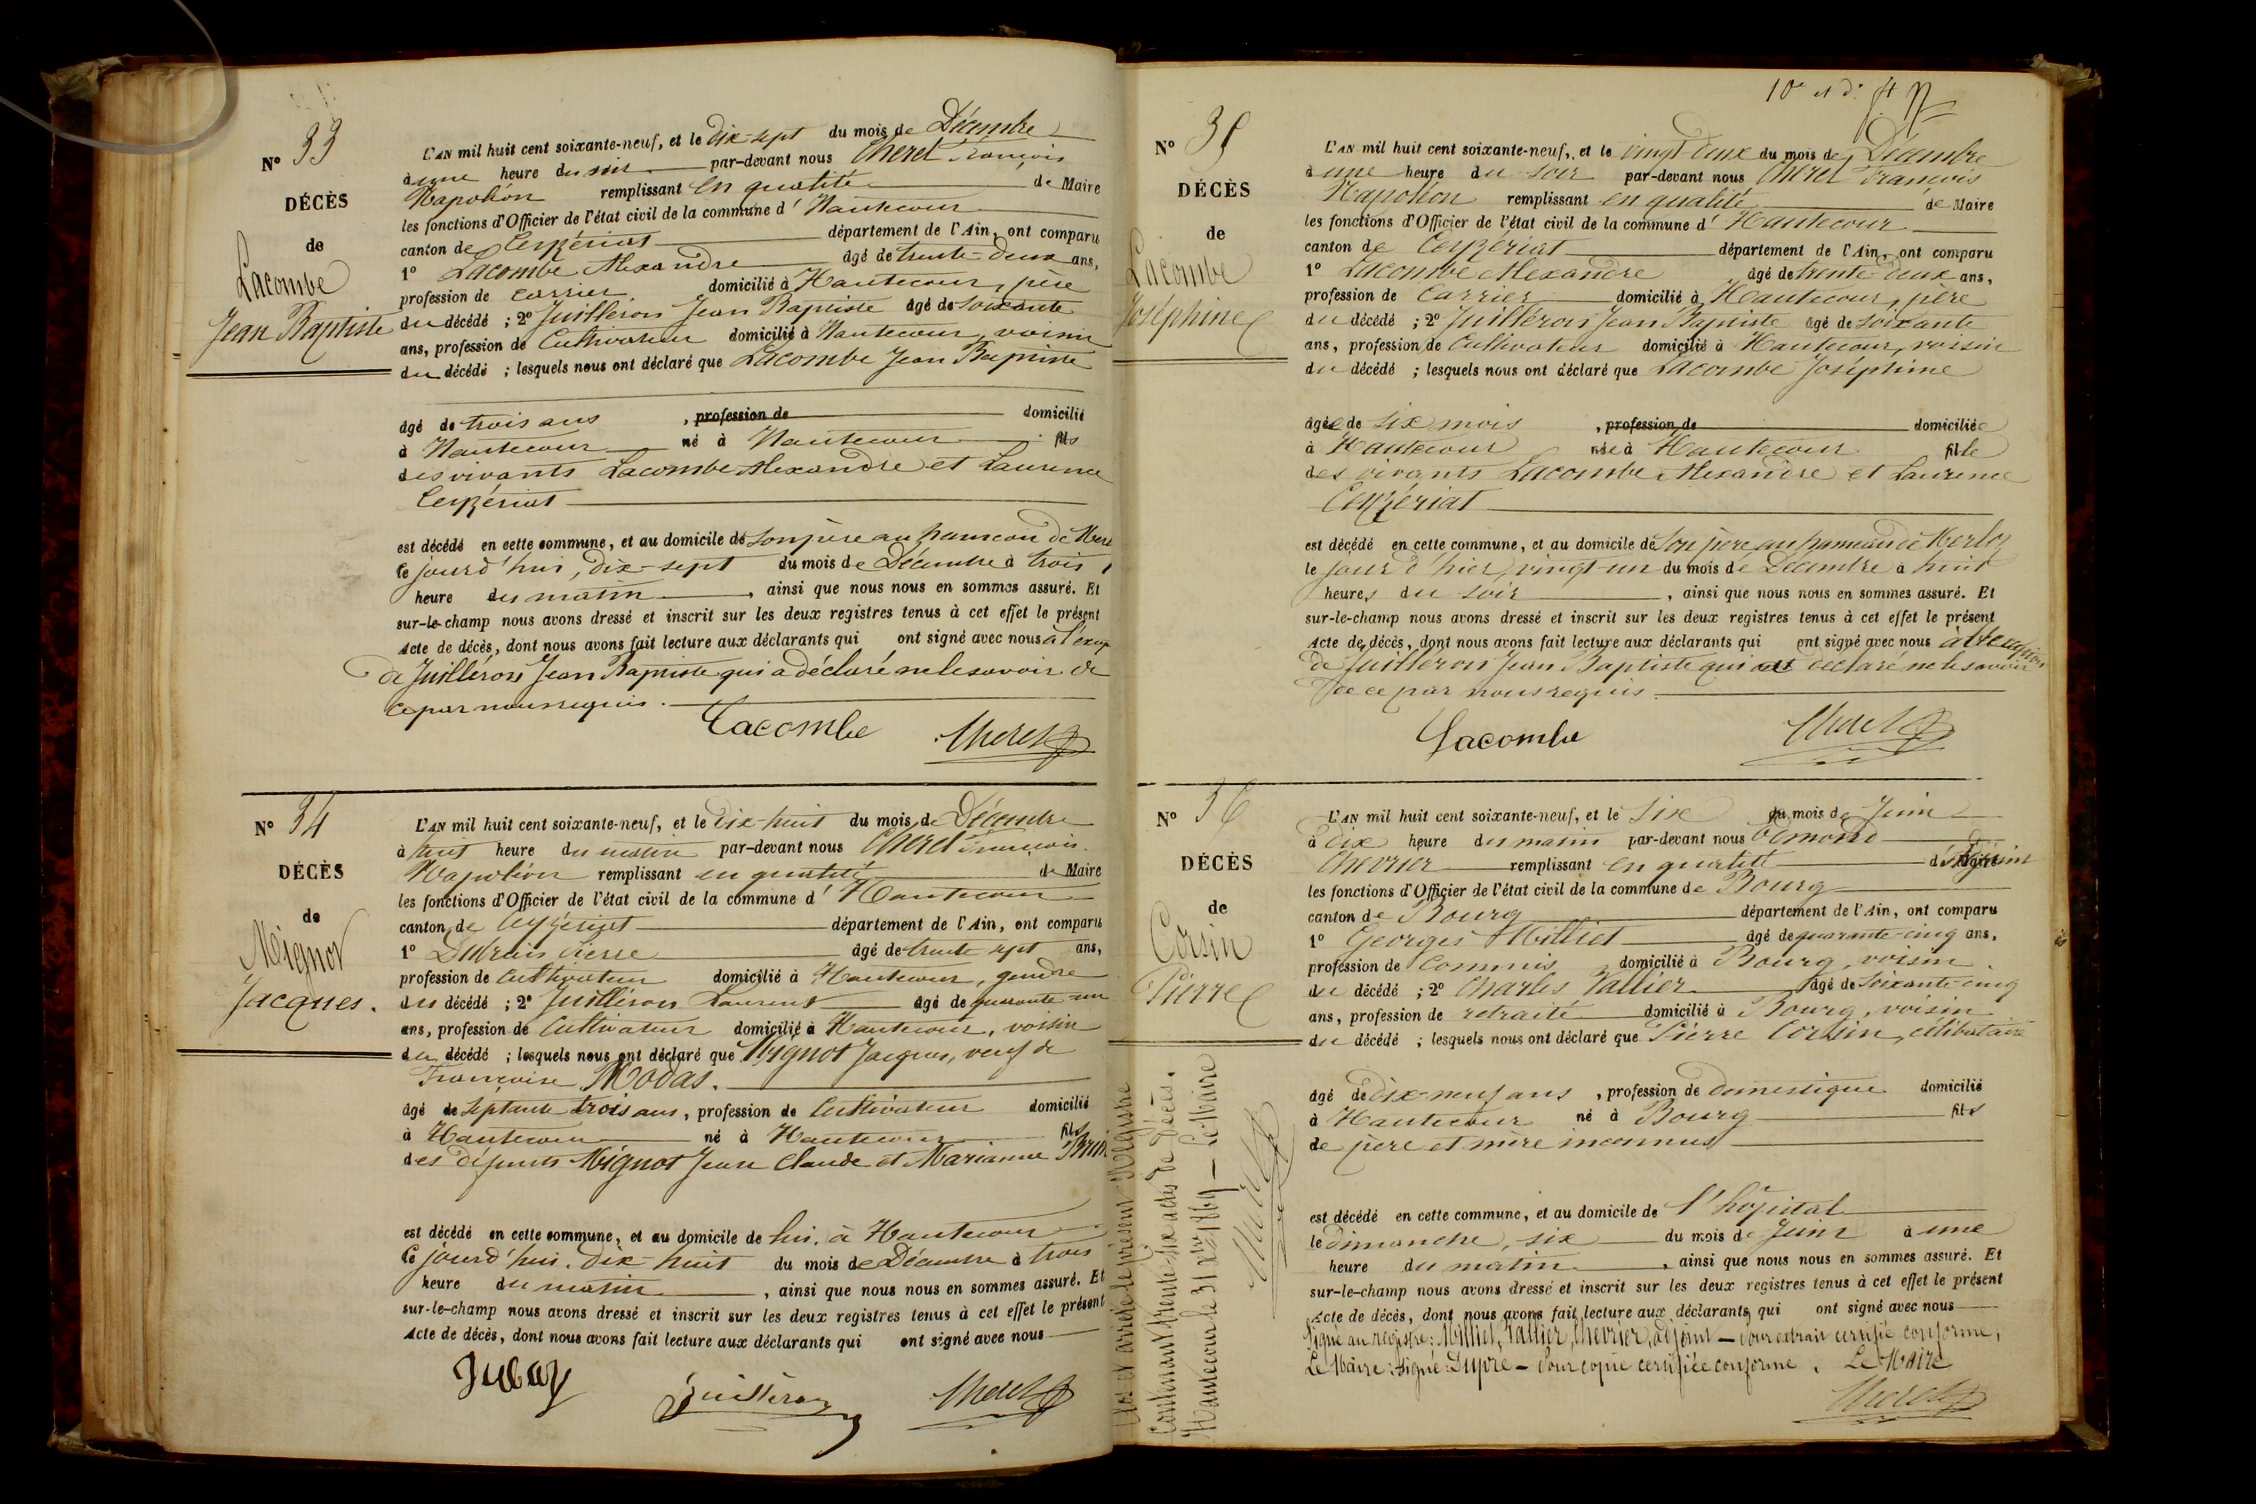 Nº 33
DÉCÈS
de
Lacombe
Jean Baptiste
L'AN mil huit cent soixante-neuf, et le dix-sept du mois de Décembre
à une heure du soir par-devant nous Cheret François
Napoléon remplissant en qualité de Maire
les fonctions d'Officier de l'état civil de la commune d' Hautecour
canton de Ceyzériat département de l'Ain, ont comparu
1º Lacombe Alexandre âgé de trente-deux ans,
profession de carrier domicilié à Hautecour, père
du décédé ; 2º Juilléron Jean Baptiste âgé de soixante
ans, profession de Cultivateur domicilié à Hautecour, voisin
du décédé ; lesquels nous ont déclaré que Lacombe Jean Baptiste
âgé de trois ans , profession de domicilié
à Hautecour né à Hautecour fils
des vivants Lacombe Alexandre et Laurence
Ceyzériat
est décédé en cette commune, et au domicile de son père au hameau de
le jourd'hui, dix-sept du mois de Décembre à trois
heure du matin , ainsi que nous nous en sommes assuré. Et
sur-le-champ nous avons dressé et inscrit sur les deux registres tenus à cet effet le présent
Acte de décès, dont nous avons fait lecture aux déclarants qui ont signé avec nous à l'excep
de Juilléron Jean Baptiste qui a déclaré ne le savoir de
ce par nous requis.
Lacombe Cheret
Nº 34
DÉCÈS
de
Mignot
Jacques.
L'AN mil huit cent soixante-neuf, et le dix-huit du mois de Décembre
à huit heure du matin par-devant nous Cheret François
Napoléon remplissant en qualité de Maire
les fonctions d'Officier de l'état civil de la commune d' Hautecour
canton de Ceyzériat département de l'Ain, ont comparu
1º Pierre âgé de trente sept ans,
profession de Cultivateur domicilié à Hautecour, gendre
du décédé ; 2º Juilléron Laurent âgé de quarante-un
ans, profession de Cultivateur domicilié à Hautecour, voisin
du décédé ; lesquels nous ont déclaré que Mignot Jacques, veuf de
Françoise Modas.
âgé de septante trois ans, profession de Cultivateur domicilié
à Hautecour né à Hautecour fils
des défunts Mignot Jean Claude et Marianne
est décédé en cette commune, et au domicile de lui, à Hautecour
le jourd'hui, dix-huit du mois de Décembre à trois
heure du matin , ainsi que nous nous en sommes assuré. Et
sur-le-champ nous avons dressé et inscrit sur les deux registres tenus à cet effet le présent
Acte de décès, dont nous avons fait lecture aux déclarants qui ont signé avec nous
Juilléron Cheret
Nº 35
DÉCÈS
de
Lacombe
Joséphine
L'AN mil huit cent soixante-neuf, et le vingt-deux du mois de Décembre
à une heure du soir par-devant nous Cheret François
Napoléon remplissant en qualité de Maire
les fonctions d'Officier de l'état civil de la commune d' Hautecour
canton de Ceyzériat département de l'Ain, ont comparu
1º Lacombe Alexandre âgé de trente-deux ans,
profession de Carrier domicilié à Hautecour, père
du décédé ; 2º Juilléron Jean Baptiste âgé de soixante
ans, profession de Cultivateur domicilié à Hautecour, voisin
du décédé ; lesquels nous ont déclaré que Lacombe Joséphine
âgée de six mois , profession de domiciliée
à Hautecour née à Hautecour fille
des vivants Lacombe Alexandre et Laurence
Ceyzériat
est décédé en cette commune, et au domicile de son père au hameau de Merloz
le jour d'hier, vingt-un du mois de Décembre à huit
heures du soir , ainsi que nous nous en sommes assuré. Et
sur-le-champ nous avons dressé et inscrit sur les deux registres tenus à cet effet le présent
Acte de décès, dont nous avons fait lecture aux déclarants qui ont signé avec nous à l'exception
de Juilléron Jean Baptiste qui a déclaré ne le savoir
de ce par nous requis.
Lacombe Cheret
Nº 36
DÉCÈS
de
Corsin
Pierre
L'AN mil huit cent soixante-neuf, et le six du mois de Juin
à dix heure du matin par-devant nous Edmond
Chevrier remplissant en qualité d'adjoint
les fonctions d'Officier de l'état civil de la commune de Bourg
canton de Bourg département de l'Ain, ont comparu
1º Georges Milliet âgé de quarante-cinq ans,
profession de Commis domicilié à Bourg, voisin
du décédé ; 2º Charles Vallier âgé de soixante-cinq
ans, profession de retraité domicilié à Bourg, voisin
du décédé ; lesquels nous ont déclaré que Pierre Corsin, célibataire
âgé de dix-neuf ans , profession de domestique domicilié
à Hautecour né à Bourg fils
de père et mère inconnus
est décédé en cette commune, et au domicile de l'hôpital
le dimanche, six du mois de Juin à une
heure du matin , ainsi que nous nous en sommes assuré. Et
sur-le-champ nous avons dressé et inscrit sur les deux registres tenus à cet effet le présent
Acte de décès, dont nous avons fait lecture aux déclarants qui ont signé avec nous
Signé au registre: Milliet, Vallier, Chevrier, adjoint – Pour extrait certifié conforme,
Le Maire: signé: Dupré – Pour copie certifiée conforme. Le Maire
Cheret
Clos et arrêté le présent Registre
Contenant trente-six actes de Décès.
Hautecour le 31 Xbre 1869 – Le Maire
Cheret